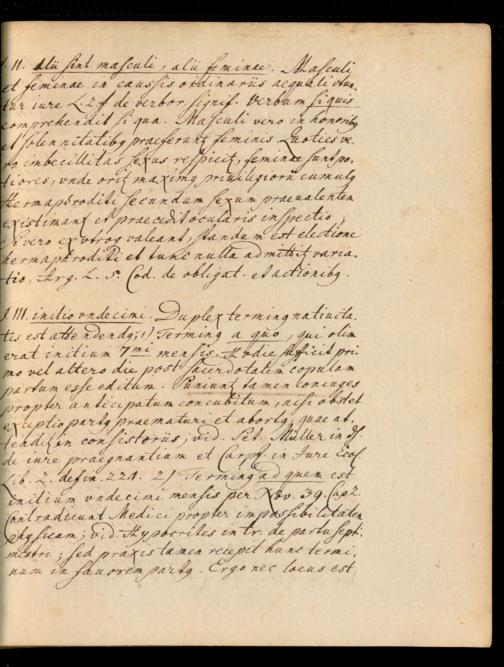 § II. alii sint masculi, alii feminae. Masculi
et feminae in caussis ordinariis aequali utun-
tur iure L. 2 ff de verbor. signif. Verbum si quis
comprehendit si qua. Masculi vero in honoribq
et solennitatibq praeferunt feminis Quoties ve-
ro imbecillitas sexus respicit, feminae sunt po-
tiores, vnde orit maximq privilegiorum cumulq
Hermaphroditi secundum sexum praevalentem
existimant et praecedit ocularis inspectio,
Si vero ex utroq valeant, standum est electione
hermaphroditi et tunc nulla admittit varia-
tio, Arg. L. 5. Cod. de obligat. et actionibq.
§ III. initio vndecimi. Duplex terminq nativita-
tis est attendendq; 1) Terminq a quo, qui olim
erat initium 7mi mensis. Hodie sufficit pri-
mo vel altero die post sacerdotalem copulam
partum esse editum. Puniunt tamen coniuges
propter anticipatum concubitum, nisi obstet
exceptio partq praematuri et abortq, quae at-
tendit in consistoriis, vid. Pet. Müller in
de iure praegnantium et Carpz. in Iure Eccl
Lib. 2. defin. 224. 2) Terminq ad quem est
initium vndecimi mensis per Nov. 39. Cap 2.
Contradicunt Medici propter impossibilitatem
physicam; vid. Hypocrites in tr. de partu septi-
mestri; sed praxis tamen recepit hunc termi-
num in favorem partq. Ergo nec locus est